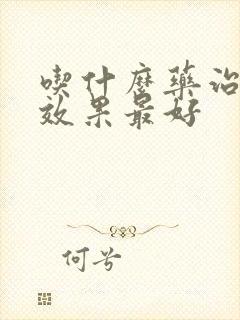 喫什麼藥治
效果最好
何兮